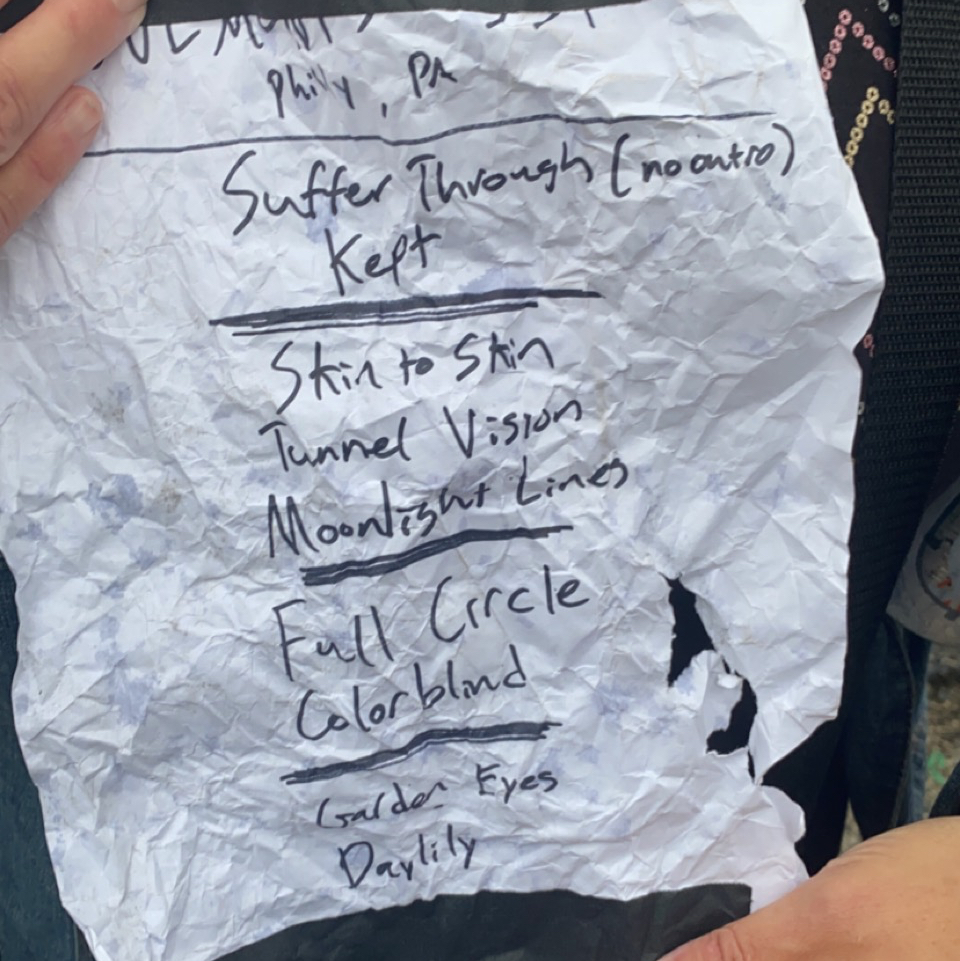 Philly, PA
Suffer Through (no outro)
Kept
Skin to Skin
Tunnel Vision
Moonlight Lines
Full Circle
Colorblind
Garden Eyes
Daylily